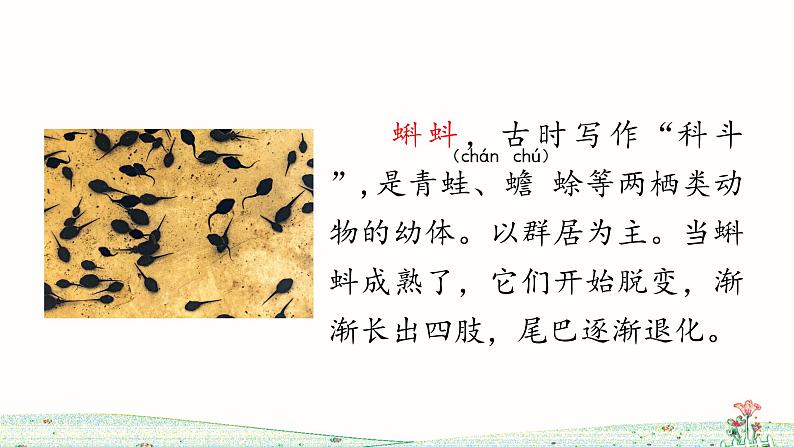 蝌蚪，古时写作“科斗
（chán chú）
”，是青蛙、蟾 蜍等两栖类动
物的幼体。以群居为主。当蝌
蚪成熟了，它们开始脱变，渐
渐长出四肢，尾巴逐渐退化。